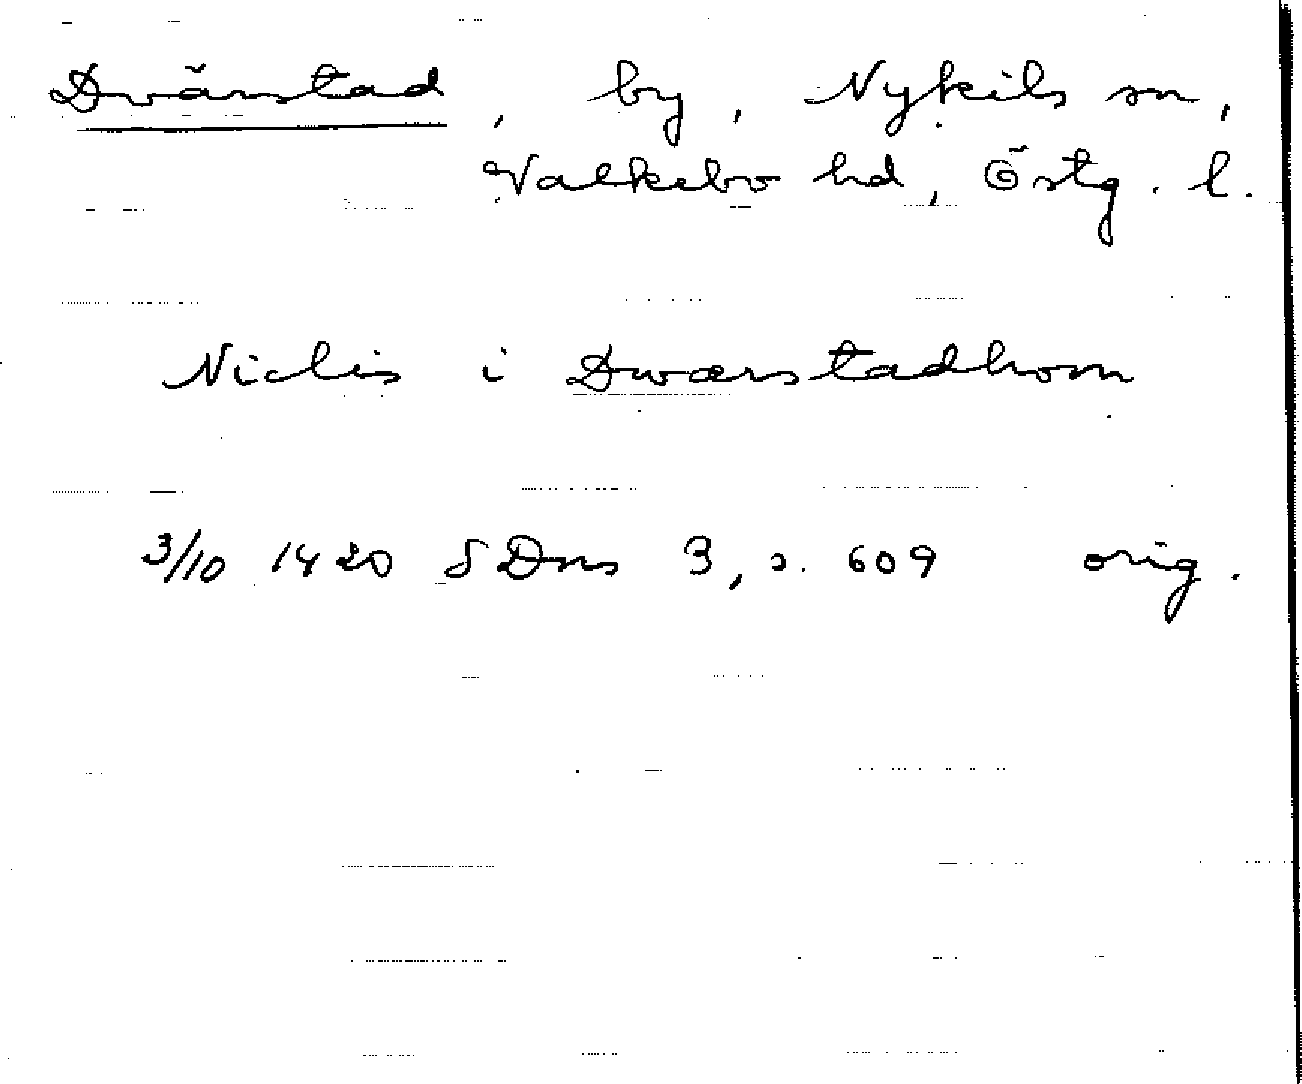 Dvärstad, by, Nykils sn,
Valkebo hd, Östg. l.
Niclis i Dwærstadhom
3/10 1420 SDns 3, s. 609 orig.